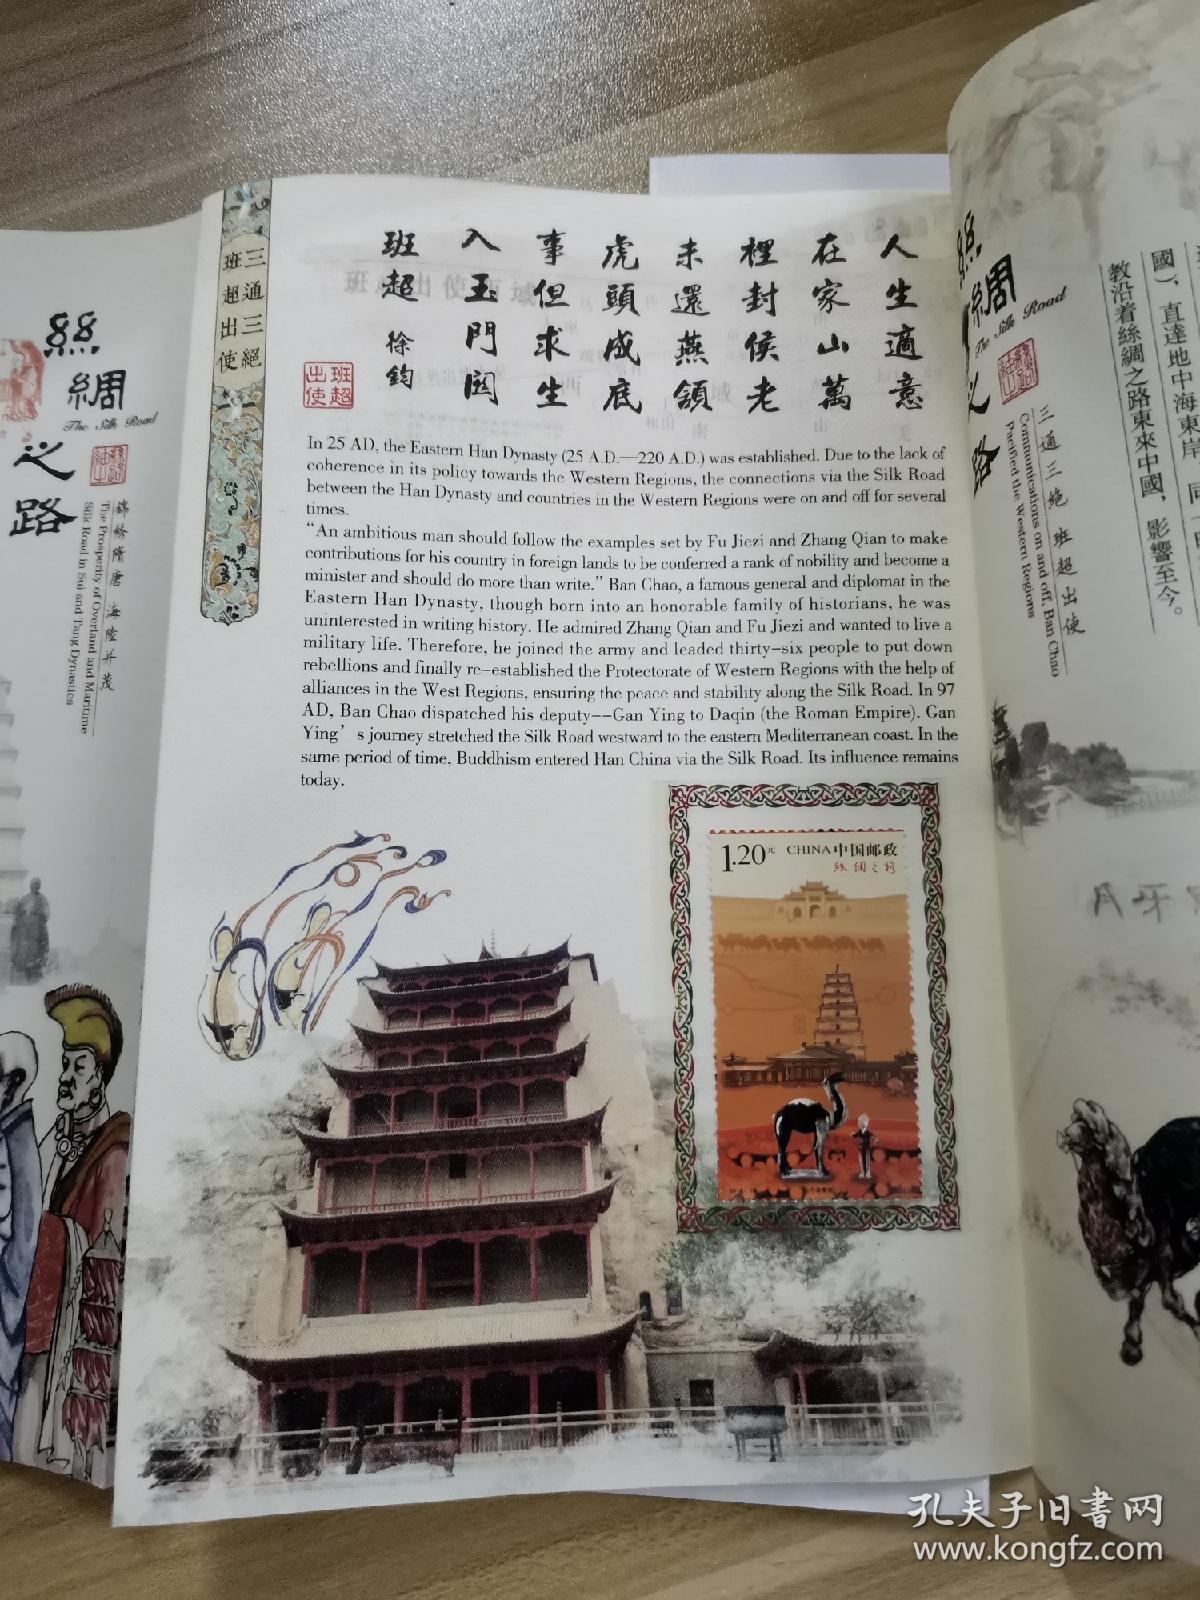 人生適意
在家山萬
裡封侯老
未還燕頷
虎頭成底
事但求生
入玉門関
班超 徐鈞
班超
出使
三通三絕
班超出使
In 25 AD, the Eastern Han Dynasty (25 A.D.—220 A.D.) was established. Due to the lack of
coherence in its policy towards the Western Regions, the connections via the Silk Road
between the Han Dynasty and countries in the Western Regions were on and off for several
times.
“An ambitious man should follow the examples set by Fu Jiezi and Zhang Qian to make
contributions for his country in foreign lands to be conferred a rank of nobility and become a
minister and should do more than write.” Ban Chao, a famous general and diplomat in the
Eastern Han Dynasty, though born into an honorable family of historians, he was
uninterested in writing history. He admired Zhang Qian and Fu Jiezi and wanted to live a
military life. Therefore, he joined the army and leaded thirty-six people to put down
rebellions and finally re-established the Protectorate of Western Regions with the help of
alliances in the West Regions, ensuring the peace and stability along the Silk Road. In 97
AD, Ban Chao dispatched his deputy--Gan Ying to Daqin (the Roman Empire). Gan
Ying’s journey stretched the Silk Road westward to the eastern Mediterranean coast. In the
same period of time, Buddhism entered Han China via the Silk Road. Its influence remains
today.
1.20元 CHINA 中国邮政
絲綢之路
絲綢之路
The Silk Road
錦綉隋唐 海陸并茂
The Prosperity of Overland and Maritime
Silk Road in Sui and Tang Dynasties
絲綢之路
The Silk Road
三通三絕 班超出使
Communications on and off, Ban Chao
Pacified the Western Regions
國），直達地中海東岸
教沿着絲綢之路東來中國，影響至今。
孔夫子旧书网
www.kongfz.com